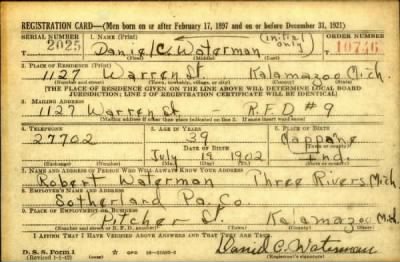 REGISTRATION CARD—(Men born on or after February 17, 1897 and on or before December 31, 1921)
SERIAL NUMBER 1. NAME (Print) ORDER NUMBER
2025 Daniel C. Waterman (initial only) 10746
(First) (Middle) (Last)
2. PLACE OF RESIDENCE (Print)
1127 Warren St. Kalamazoo Mich.
(Number and street) (Town, township, village, or city) (County) (State)
[THE PLACE OF RESIDENCE GIVEN ON THE LINE ABOVE WILL DETERMINE LOCAL BOARD
JURISDICTION; LINE 2 OF REGISTRATION CERTIFICATE WILL BE IDENTICAL]
3. MAILING ADDRESS
1127 Warren St — R.F.D #9
4. TELEPHONE 5. AGE IN YEARS 6. PLACE OF BIRTH
27702 39 Nappane
DATE OF BIRTH
July 19 1902 Ind.
(Exchange) (Number) (Mo.) (Day) (Yr.) (State or country)
7. NAME AND ADDRESS OF PERSON WHO WILL ALWAYS KNOW YOUR ADDRESS
Robert Waterman Three Rivers Mich
8. EMPLOYER'S NAME AND ADDRESS
Sotherland Pa. Co.
9. PLACE OF EMPLOYMENT OR BUSINESS
Pitcher St. Kalamazoo Mich
(Number and street or R. F. D. number) (Town) (County) (State)
I AFFIRM THAT I HAVE VERIFIED ABOVE ANSWERS AND THAT THEY ARE TRUE.
D. S. S. Form 1 GPO Daniel C. Waterman